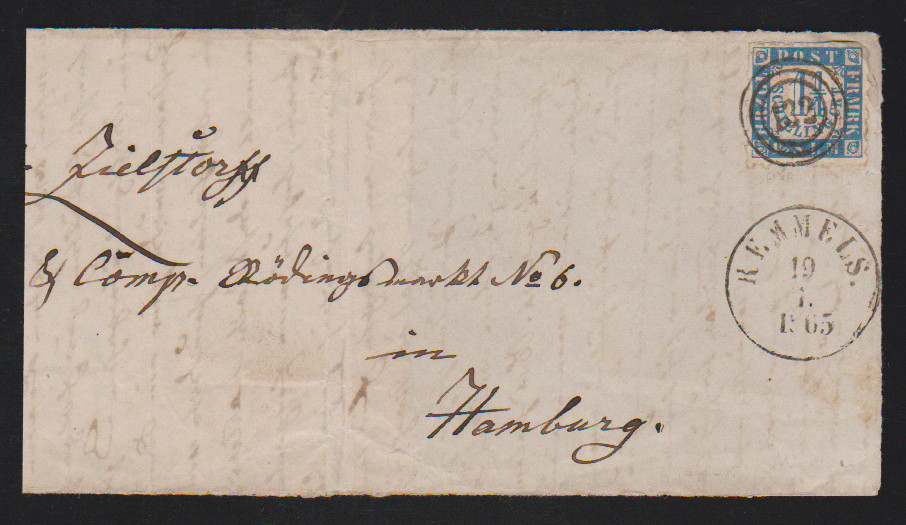 POST
FRMRK
1¼
Zielstorff
& Comp. Rödingsmarkt No 6.
in
Hamburg.
REMMELS.
19
1.
1865